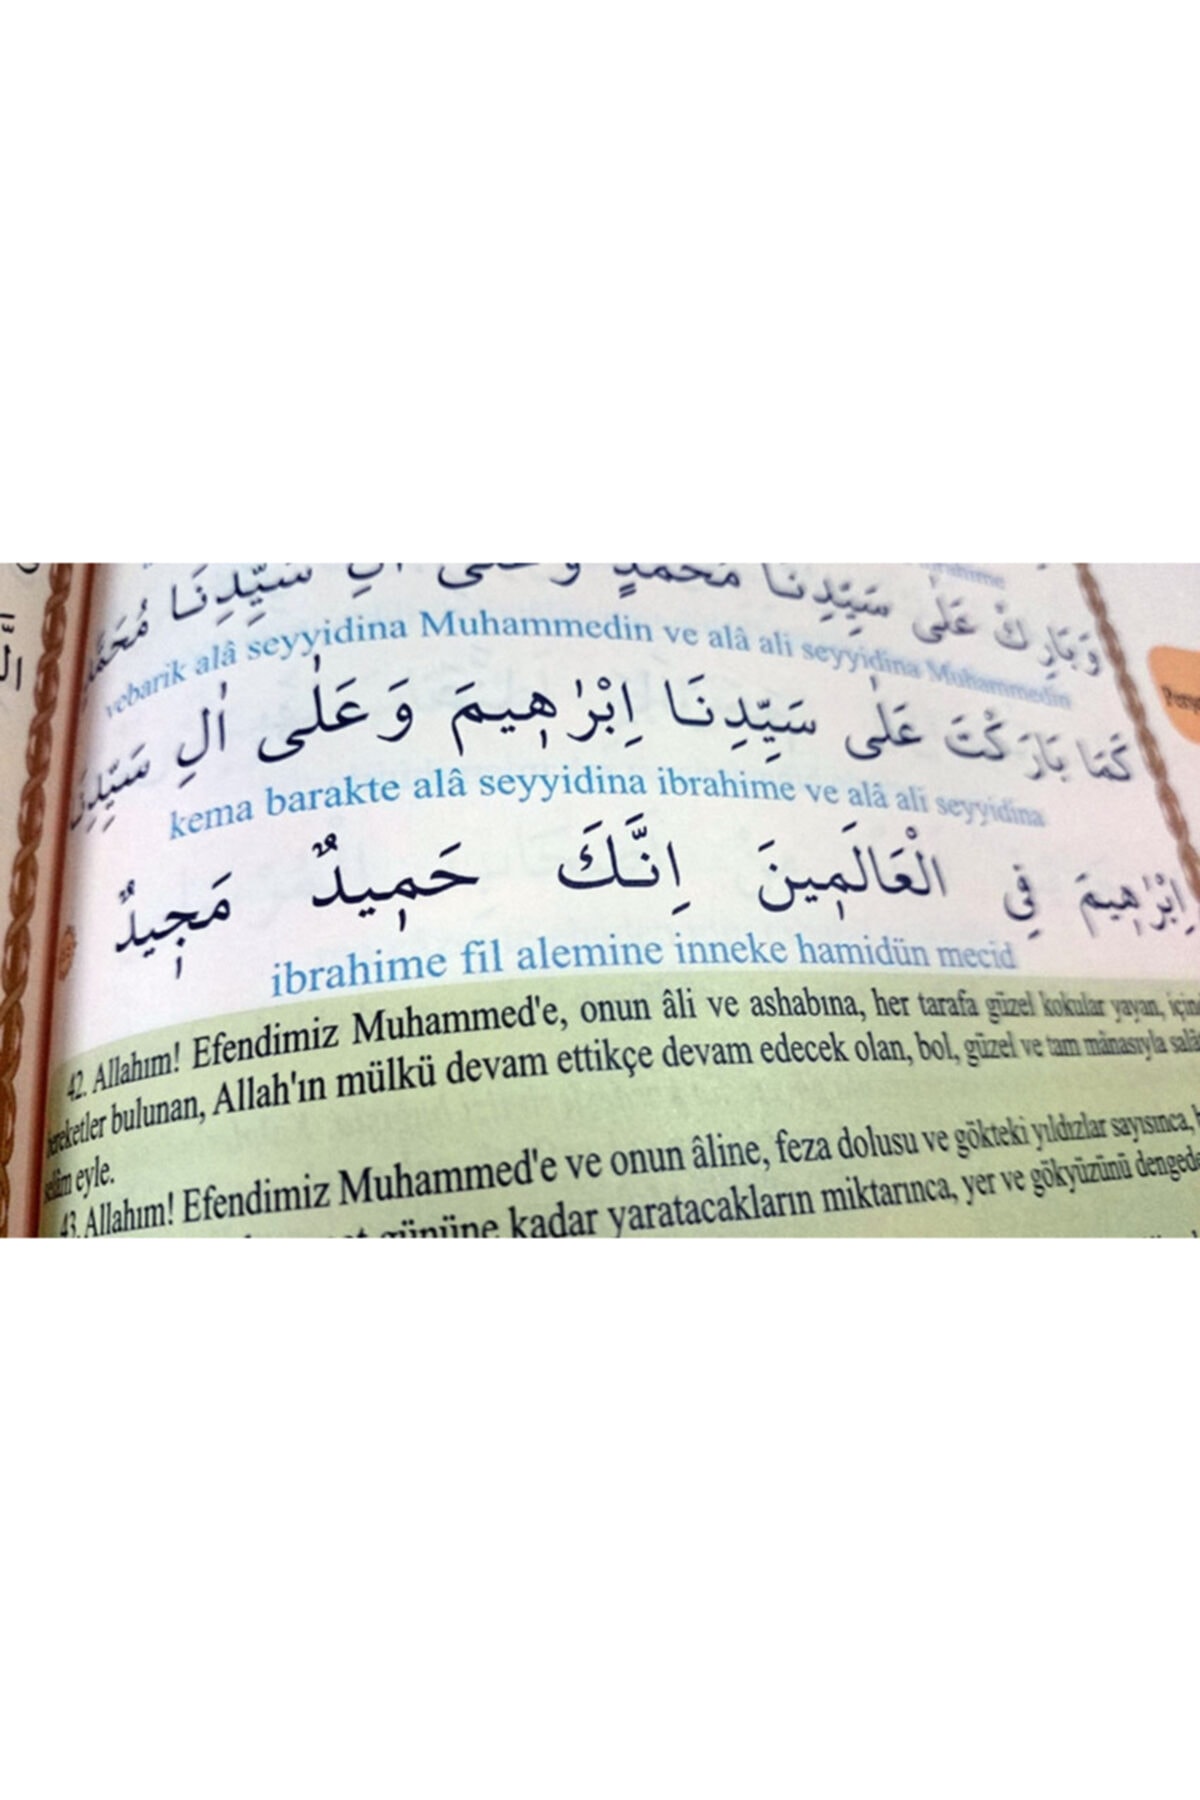 وَبَارِكْ عَلٰى سَيِّدِنَا مُحَمَّدٍ وَعَلٰى اٰلِ سَيِّدِنَا
vebarik alâ seyyidina Muhammedin ve alâ ali seyyidina Muhammedin
كَمَا بَارَكْتَ عَلٰى سَيِّدِنَا اِبْرٰه۪يمَ وَعَلٰى اٰلِ سَيِّدِنَا
kema barakte alâ seyyidina ibrahime ve alâ ali seyyidina
اِبْرٰه۪يمَ فِي الْعَالَم۪ينَ اِنَّكَ حَم۪يدٌ مَج۪يدٌ
ibrahime fil alemine inneke hamidün mecid
42. Allahım! Efendimiz Muhammed'e, onun âli ve ashabına, her tarafa güzel kokular yayan,
bereketler bulunan, Allah'ın mülkü devam ettikçe devam edecek olan, bol, güzel ve tam mânasıyla
selâm eyle.
43. Allahım! Efendimiz Muhammed'e ve onun âline, feza dolusu ve gökteki yıldızlar sayısınca,
gününe kadar yaratacakların miktarınca, yer ve gökyüzünü